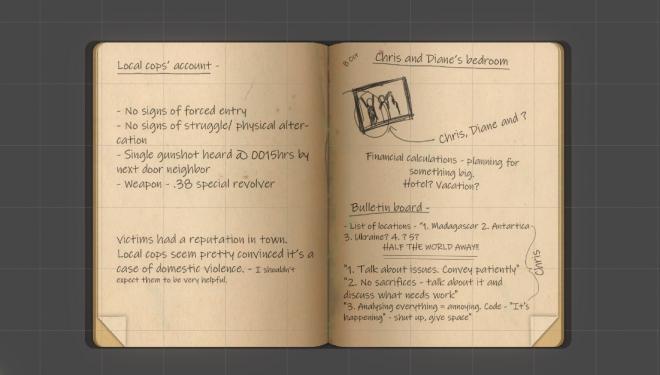 Local cops' account -
- No signs of forced entry
- No signs of struggle/ physical alter-
cation
- Single gunshot heard @ 0015hrs by
next door neighbor
- Weapon - .38 special revolver
Victims had a reputation in town.
Local cops seem pretty convinced it's a
case of domestic violence. - I shouldn't
expect them to be very helpful.
Chris and Diane's bedroom
Chris, Diane and ?
Financial calculations - planning for
something big.
Hotel? Vacation?
Bulletin board -
- List of locations - "1. Madagascar 2. Antartica
3. Ukraine? 4. ? 5?
HALF THE WORLD AWAY!!
"1. Talk about issues. Convey patiently"
"2. No sacrifices - talk about it and
discuss what needs work"
"3. Analysing everything = annoying. Code - "It's
happening" - shut up, give space"
Chris